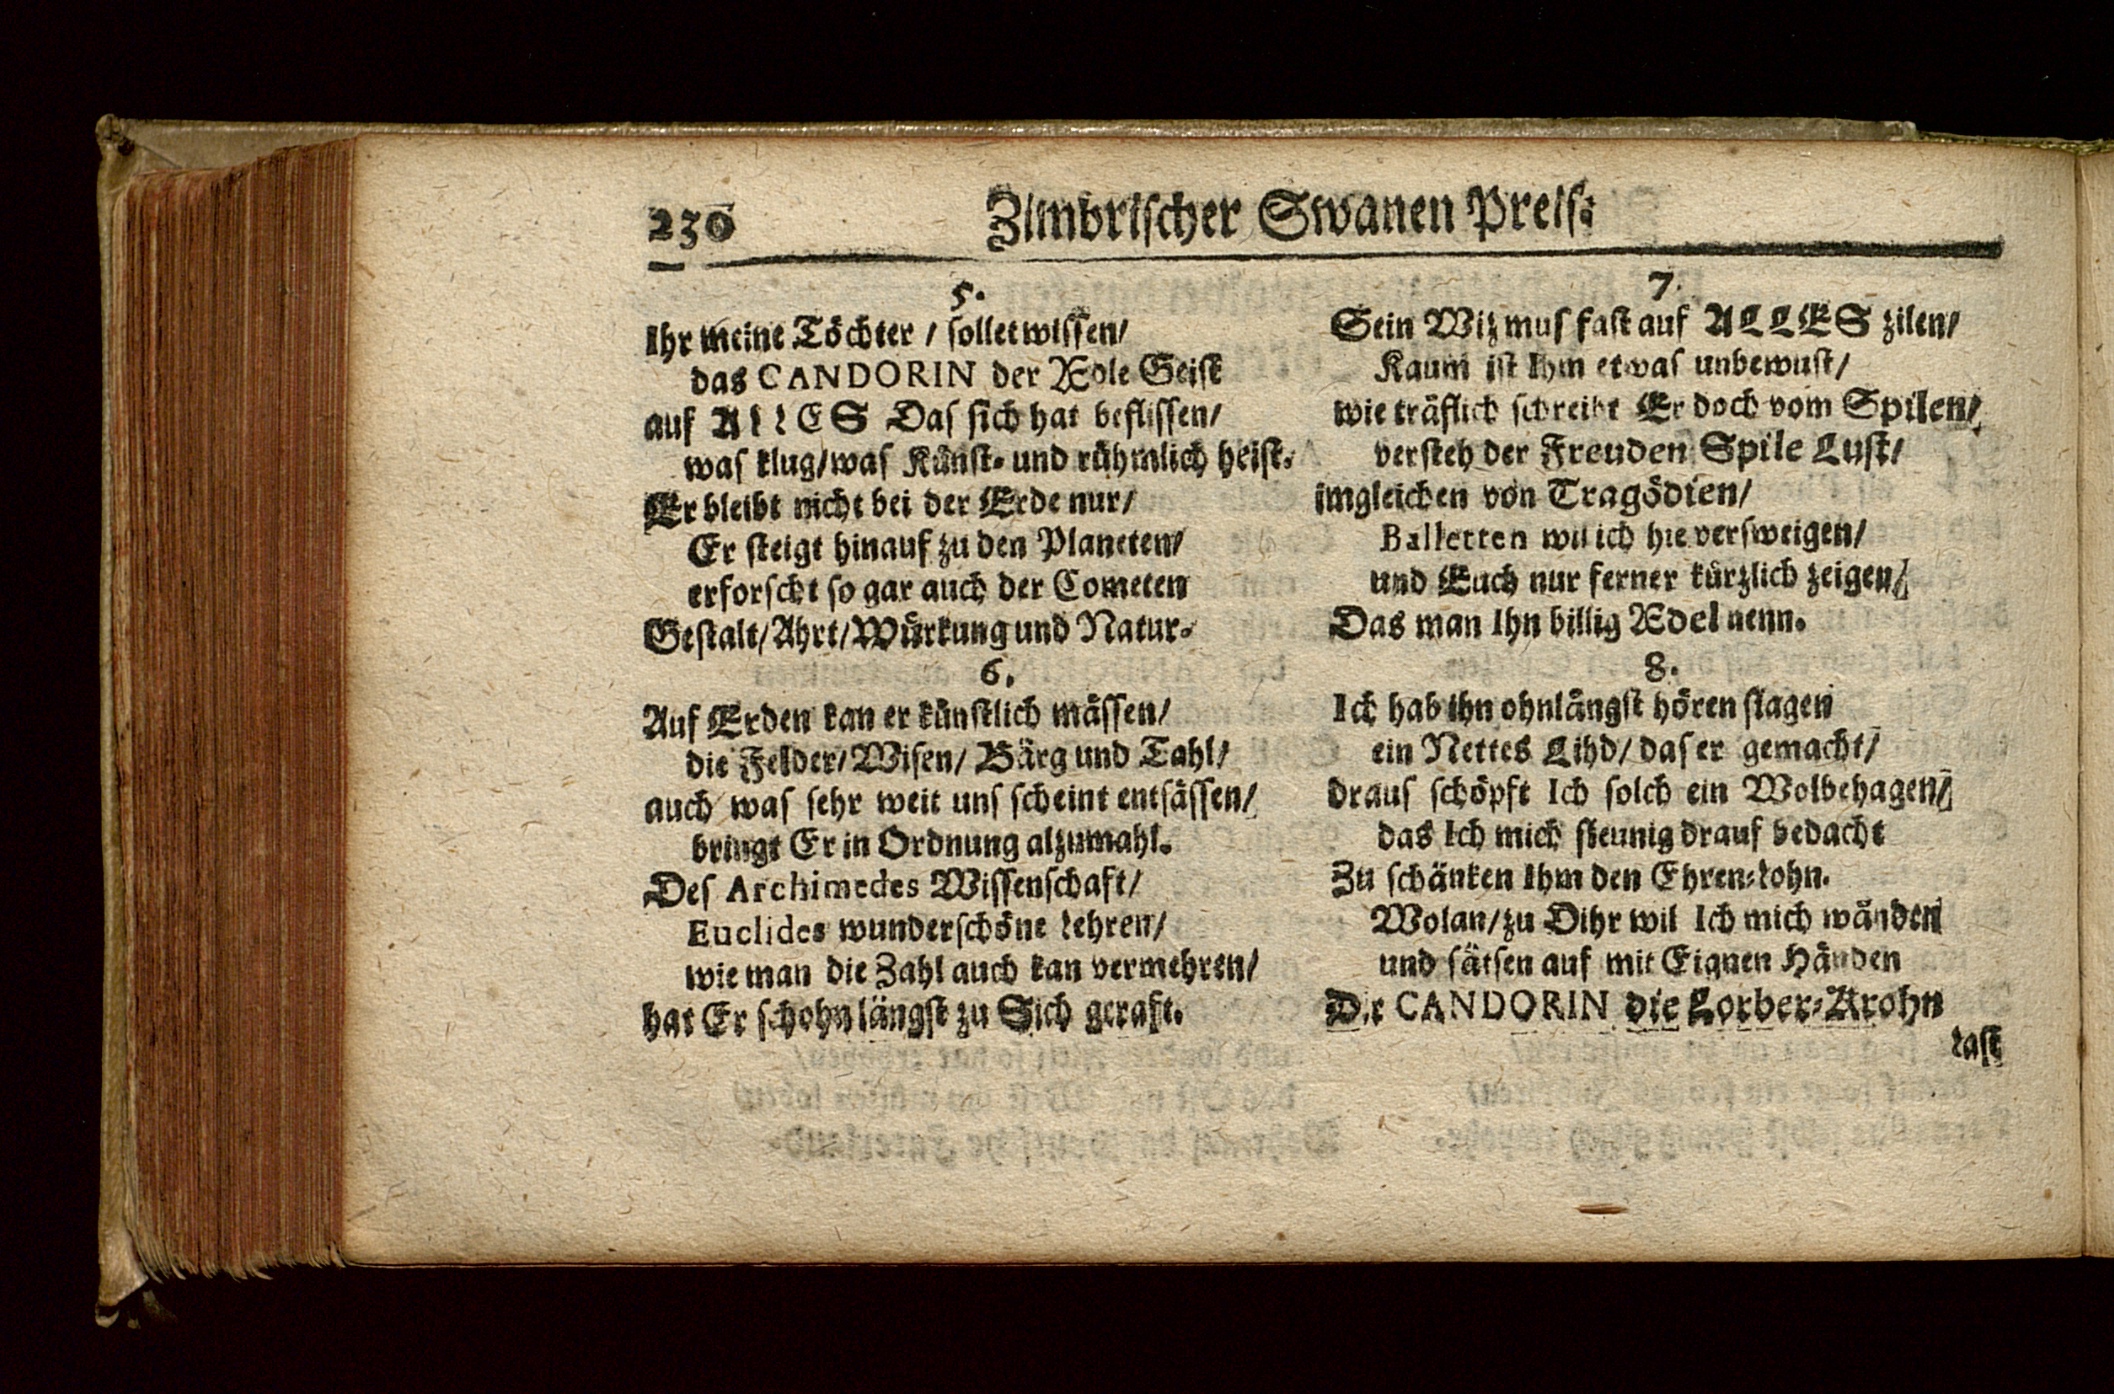 230 Zimbrischer Swanen Preis:
5.
Ihr meine Töchter / sollet wissen/
das CANDORIN der Æole Geist
auf ALLES Das sich hat beflissen/
was klug/was Künst- und rühmlich heist.
Er bleibt nicht bei der Erde nur/
Er steigt hinauf zu den Planeten/
erforscht so gar auch der Cometen
Gestalt/Ahrt/Würkung und Natur.
6.
Auf Erden kan er künstlich mässen/
die Felder/Wisen/ Bärg und Tahl/
auch was sehr weit uns scheint entsässen/
bringt Er in Ordnung alzumahl.
Des Archimedes Wissenschaft/
Euclides wunderschöne Lehren/
wie man die Zahl auch kan vermehren/
hat Er schohn längst zu Sich geraft.
7.
Sein Wiz mus fast auf ALLES zilen/
Kaum ist Ihm etwas unbewust/
wie träflich schreibt Er doch vom Spilen/
versteh der Freuden Spile Lust/
imgleichen von Tragödien/
Balletten wil ich hie versweigen/
und Euch nur ferner kürzlich zeigen/
Das man Ihn billig Ædel nenn.
8.
Ich hab ihn ohnlängst hören slagen
ein Nettes Lihd/ das er gemacht/
draus schöpft Ich solch ein Wolbehagen/
das Ich mich sleunig drauf bedacht
Zu schänken Ihm den Ehren-Lohn.
Wolan/zu Dihr wil Ich mich wänden
und sätsen auf mit Eignen Händen
Dir CANDORIN die Lorber-Krohn
Last